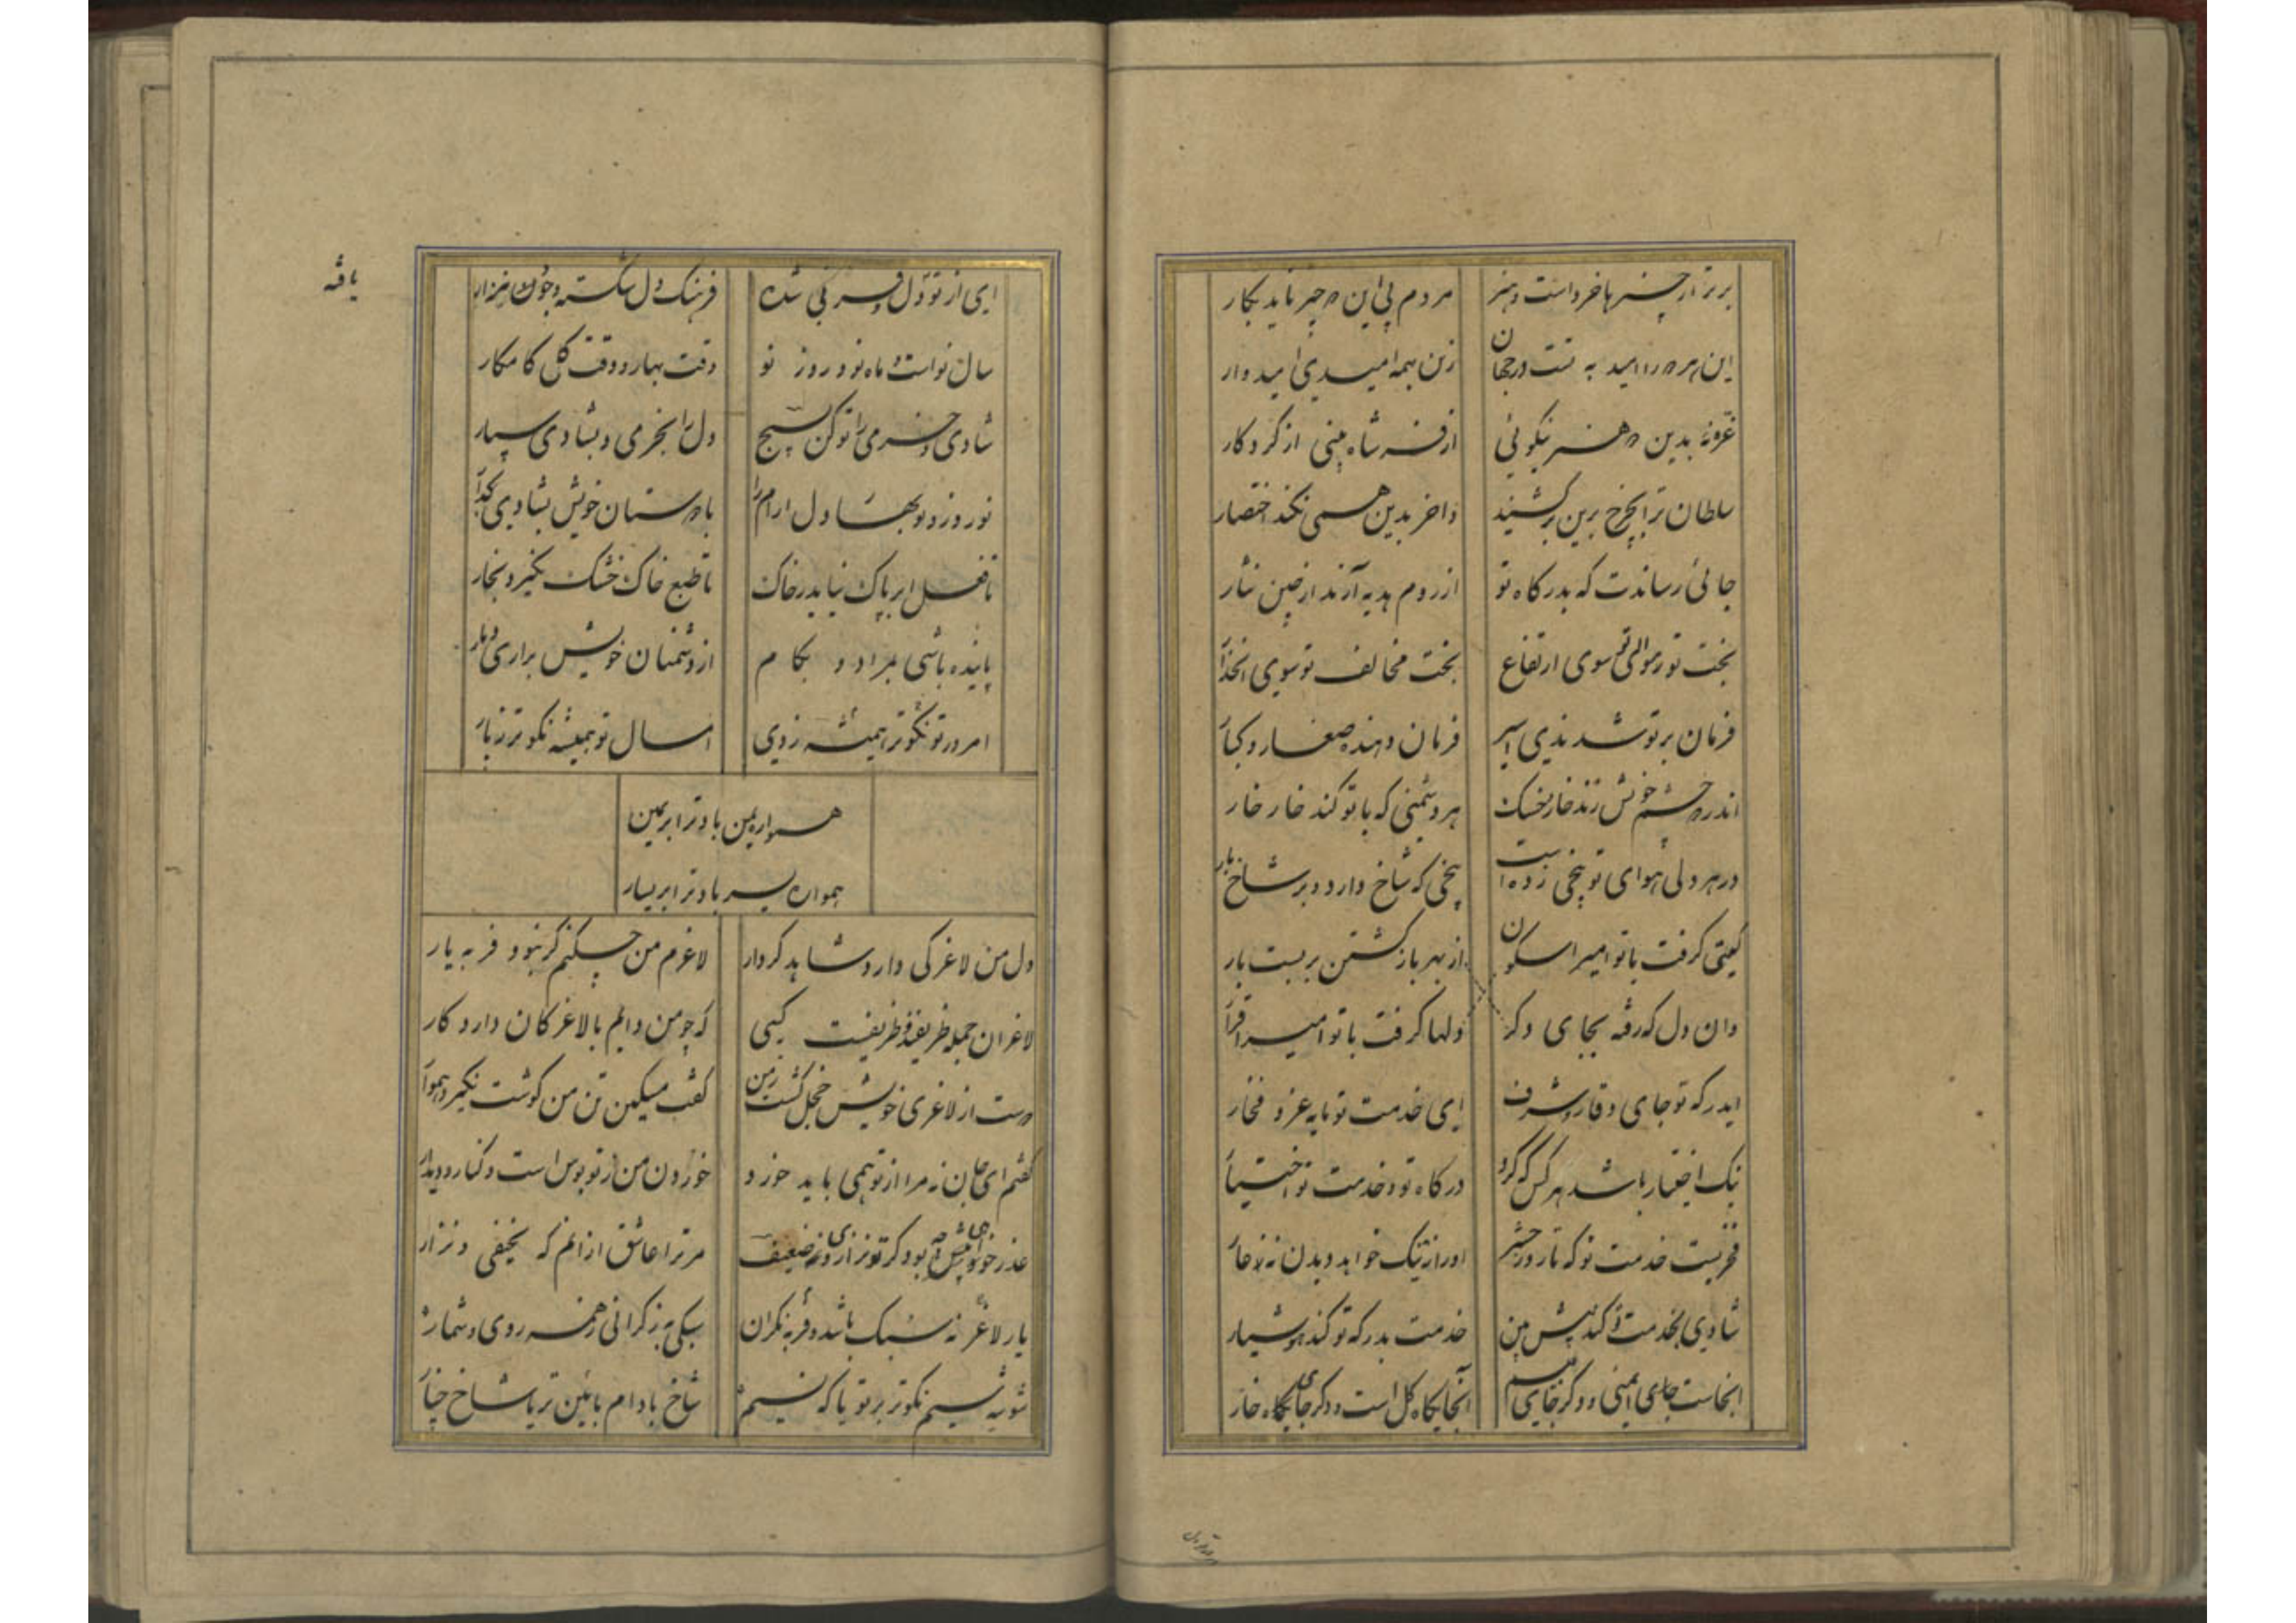 برتر از چیزها خرد است و هنر
مردم بی این دو چیز ناید بکار
این هر دو را امید به تست در جهان
زین همه امیدی امیدوار
غره نه بدین دو هنر نیکوئی
از فر شاه بینی از کردکار
سلطان ترا بچرخ برین برکشید
واخر بدین همی نکند اختصار
جائی رساندت که بدرکاه تو
از روم هدیه آرند از چین نثار
بخت تو و موالی تو سوی ارتفاع
بخت مخالف تو سوی انحدار
فرمان بر تو شد
فرمان دهنده صغار و کبار
اندر دو چشم خویش زند خار خسک
هر دشمنی که با تو کند خار خار
در هر دلی هوای تو بیخی زده است
بیخی که شاخ دارد و بر شاخ بار
کیتی کرفت با تو امیرا سکون
از بهر بازکشتن بربست بار
وان دل که رفته بجای دکر
دلها کرفت با تو امیرا قرار
ایدر که تو جای وقار و شرف
ای خدمت تو مایه عز و فخار
نیک اختیار باشد هر کس که کرد
درکاه تو و خدمت تو اختیار
فخریست خدمت تو که تا روز حشر
او را ز ننک خواهد دیدن نه عار
شادی بخدمت تو کند پیش بین
خدمت بدرکه تو کند هوشیار
اینجاست جای ایمنی و دکر جای بیم
اینجایکاه کل است و دکر جایکاه خار
ای از تو دل و فر کی شده
فرهنک دل شکسته و جود نزار
سال نو است و ماه نو و روز نو
وقت بهار و وقت کل کامکار
شادی و خرمی را نو کن بسیج
دل را بخرمی و بشادی سپار
نوروز و نوبهار دل ارام را
با دوستان خویش بشادی کذار
تا فضل ابر پاک نیاید ز خاک
تا طبع خاک خشک نکیرد بخار
پاینده باشی بمراد و بکام
از دشمنان خویش براری دمار
امروز تو نکوتر همیشه ز دی
امسال تو همیشه نکوتر ز پار
همواره یمن باد ترا بر یمین
همواره یسر باد ترا بر یسار
دل من لاغرکی دارد شاهد کردار
لاغرم من چکنم کر نبود فربه یار
لاغران جمله ظریفند و ظریفست کسی
که چو من دایم با لاغرکان دارد کار
دوست از لاغری خویش خجل کشت ز من
کفت مسکین تن من کوشت نکیرد هموار
کفتم ای جان نه مرا از تو همی باید خورد
خوردن من ز تو بوس است و کنار و دیدار
عذر خواهی چه بود کر تو نزاری و ضعیف
مر ترا عاشق ازانم که نحیفی و نزار
یار لاغر نه سبک باشد و فربه کران
سبکی به ز کرانی ز همه روی و شمار
شوشه سیم نکوتر بر تو یا که سیم
شاخ بادام بایین تر یا شاخ چنار
یافه